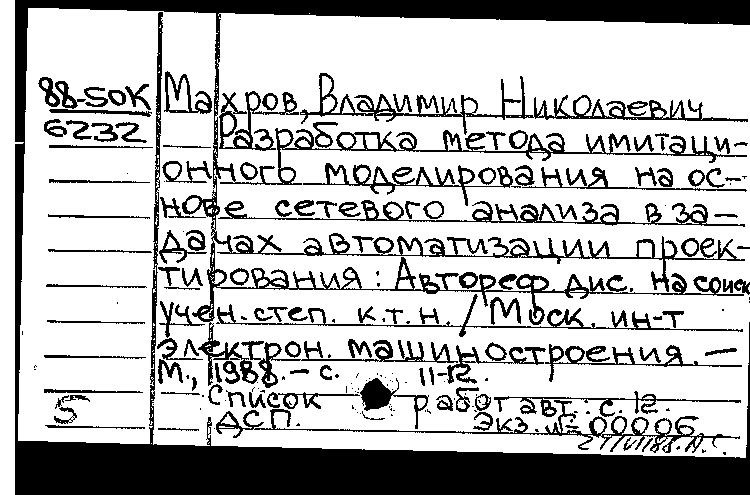 88-50К Махров, Владимир Николаевич
6232 Разработка метода имитаци-
онного моделирования на ос-
нове сетевого анализа в за-
дачах автоматизации проек-
тирования: Автореф. дис. на соиск
учен. степ. к.т.н. / Моск. ин-т
электрон. машиностроения. —
М., 1988. - с. 11-12.
Список работ авт.: с. 12.
5 ДСП. Экз. № 00006